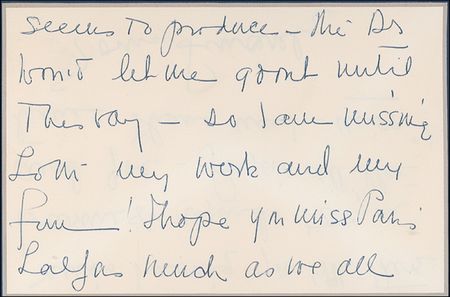 seems to produce – the Dr
won't let me go out until
Thursday – so I am missing
both my work and my
fun — ! I hope you miss Paris
half as much as we all